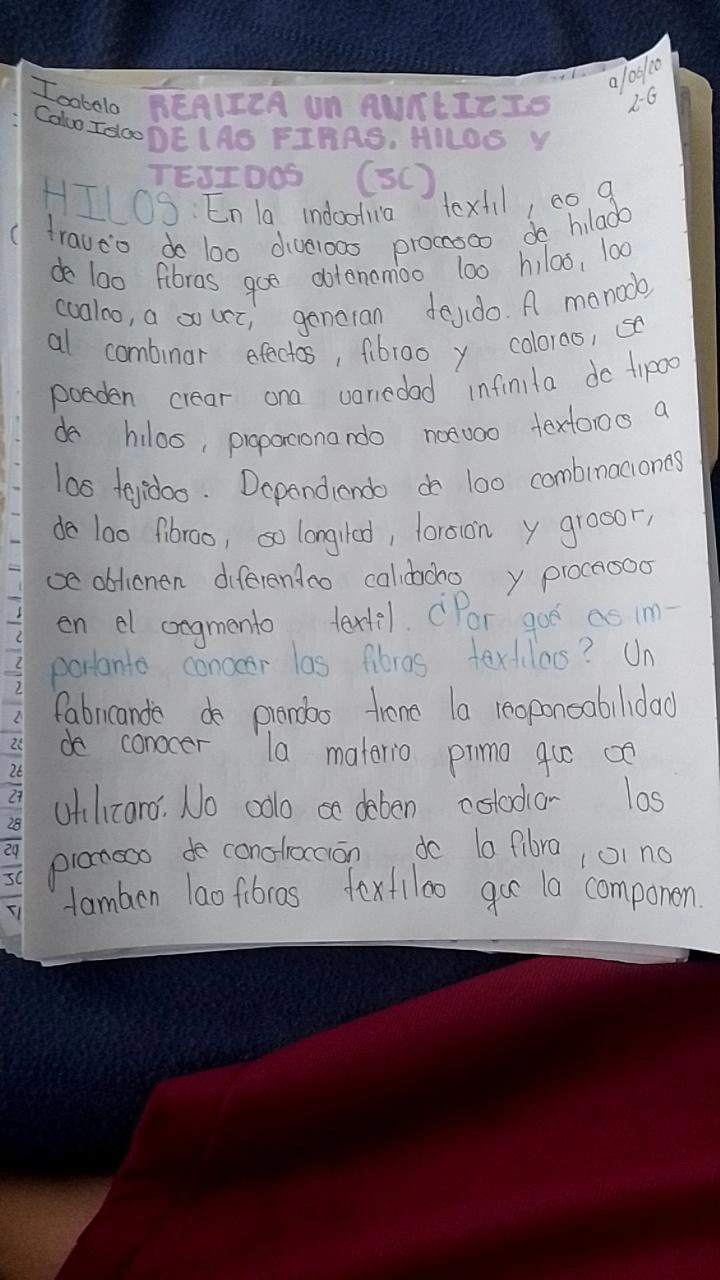 Isabela
Calvo Islas
9/06/20
2-G
REALIZA UN ANALICIS
DE LAS FIRAS. HILOS Y
TEJIDOS (3C)
HILOS: En la industria textil, es a
través de los diversos procesos de hilado
de las fibras que obtenemos los hilos, los
cuales, a su vez, generan tejido. A menodo,
al combinar efectos, fibras y colores, se
pueden crear una variedad infinita de tipos
de hilos, proporcionando nuevas texturas a
los tejidos. Dependiendo de las combinaciones
de las fibras, su longitud, torsión y grosor,
se obtienen diferentes calidades y procesos
en el segmento textil. ¿Por qué es im-
portante conocer las fibras textiles? Un
fabricande de prendas tiene la responsabilidad
de conocer la materia prima que se
utilizará. No solo se deben estudiar los
procesos de construcción de la fibra, si no
tambien las fibras textiles que la componen.
25
26
27
28
29
30
31